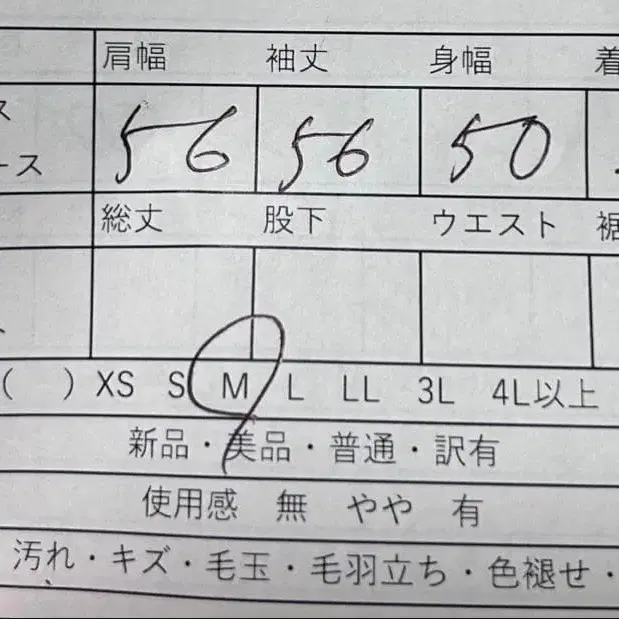 肩幅 袖丈 身幅 着
ス
56 56 50
ース
総丈 股下 ウエスト 裾
( ) XS S M L LL 3L 4L以上
新品・美品・普通・訳有
使用感 無 やや 有
汚れ・キズ・毛玉・毛羽立ち・色褪せ・